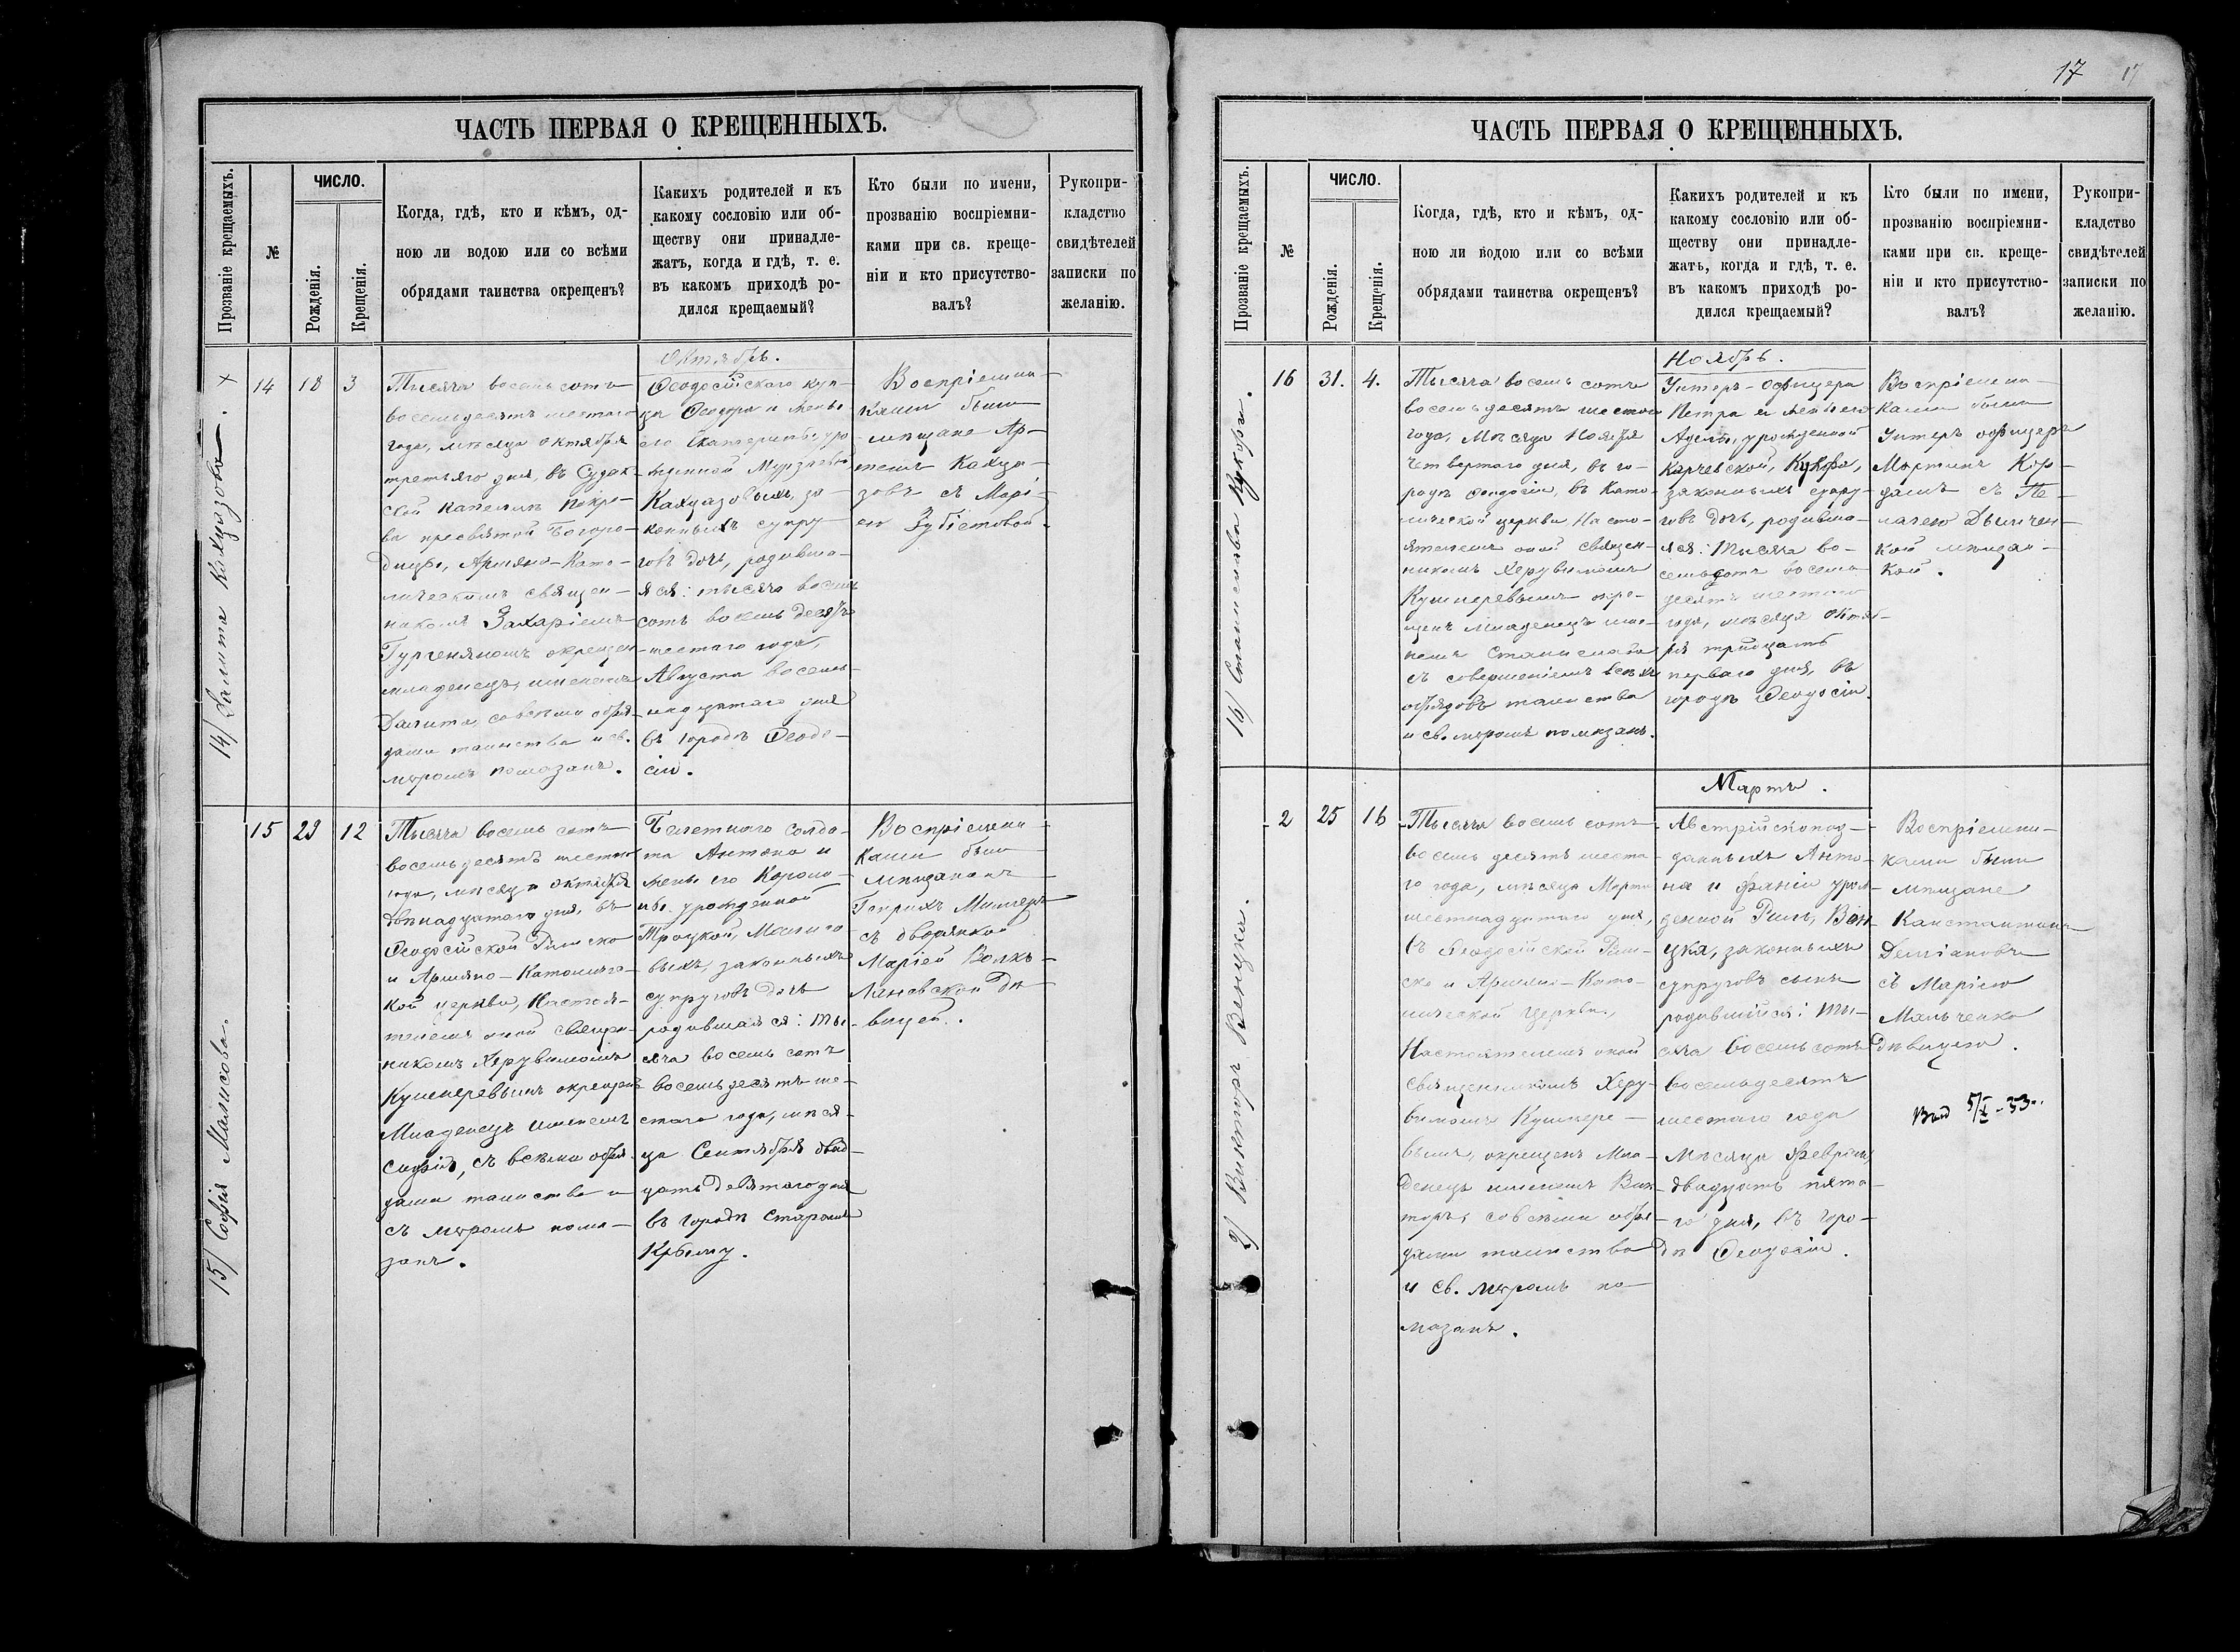 ЧАСТЬ ПЕРВАЯ О КРЕЩЕННЫХЪ.
Прозваніе крещаемыхъ.
№
ЧИСЛО.
Рожденія.
Крещенія.
Когда, гдѣ, кто и кѣмъ, од-
ною ли водою или со всѣми
обрядами таинства окрещенъ?
Какихъ родителей и къ
какому сословію или об-
ществу они принадле-
жатъ, когда и гдѣ, т. е.
въ какомъ приходѣ ро-
дился крещаемый?
Кто были по имени,
прозванію воспріемни-
ками при св. креще-
ніи и кто присутство-
валъ?
Рукопри-
кладство
свидѣтелей
записки по
желанію.
Октябрь.
14
18
3
Тысяча восемь сотъ
восемьдесятъ шестаго
года, мѣсяца октября
третьяго дня, въ Судак-
ской капеллѣ Покро-
ва пресвятой Богоро-
дицы, Армяно-Като-
лическимъ священ-
никомъ Захаріемъ
окрещен
младенецъ, именемъ
со всѣми обря-
дами таинства и св.
мѵромъ помазанъ.
Ѳеодосійскаго куп-
ца Ѳеодора и жены
его Екатерины, уро
за-
конныхъ супру-
говъ дочь, родивша-
яся: тысяча восемь
сотъ восемь десять
шестаго года,
Августа восем-
надцатаго дня
въ городѣ Ѳеодо-
сіи.
Воспріемни-
ками были
мѣщане Ар-
съ Марі-
ею
15
29
12
15) Софія
Тысяча восемь сотъ
восемьдесятъ шестаго
года, мѣсяца октября
двѣнадцатаго дня, въ
Ѳеодосійской Римско
и Армяно-Католичес-
кой церкви, Настоя-
телемъ оной священ-
никомъ Херувимомъ
Кушнеревымъ окрещенъ
Младенецъ именемъ
Софія, съ всѣми обря-
дами таинства и
съ мѵромъ пома-
занъ.
Билетнаго солда-
та Антона и
жены его Кароли-
ны, урожденной
Троцкой,
законныхъ
супруговъ дочь
родившаяся: ты-
сяча восемь сотъ
восемьдесятъ ше-
стаго года, мѣся-
ца Сентября двад-
цать девятаго дня
въ городѣ Старомъ
Крыму.
Воспріемни-
ками были
мѣщанинъ
Генрихъ Миллеръ
съ дворянкой
Маріей
дѣ-
вицей.
17
17
ЧАСТЬ ПЕРВАЯ О КРЕЩЕННЫХЪ.
Прозваніе крещаемыхъ.
№
ЧИСЛО.
Рожденія.
Крещенія.
Когда, гдѣ, кто и кѣмъ, од-
ною ли водою или со всѣми
обрядами таинства окрещенъ?
Какихъ родителей и къ
какому сословію или об-
ществу они принадле-
жатъ, когда и гдѣ, т. е.
въ какомъ приходѣ ро-
дился крещаемый?
Кто были по имени,
прозванію воспріемни-
ками при св. креще-
ніи и кто присутство-
валъ?
Рукопри-
кладство
свидѣтелей
записки по
желанію.
Ноябрь.
16
31.
4.
16) Станислава
Тысяча восемь сотъ
восемьдесятъ шестаго
года, Мѣсяца Ноября
четвертаго дня, въ го-
родѣ Ѳеодосіи, въ Като-
лической церкви, Насто-
ятелемъ оной священ-
никомъ Херувимомъ
Кушнеревымъ окре-
щенъ младенецъ име-
немъ Станислава
съ совершеніемъ всѣхъ
обрядовъ таинства
и св. мѵромъ помазанъ.
Унтеръ-Офицера
Петра и жены его
Адели, урожденной
Карчевской,
законныхъ супру-
говъ дочь, родивша-
яся: Тысяча во-
семьсотъ восемь
десятъ шестаго
года, мѣсяца Октяб-
ря тридцать
перваго дня, въ
городѣ Ѳеодосіи.
Воспріемни-
ками были
Унтеръ офицеръ
Мартинъ Кор-
съ Пе-
лагею
кой мѣщан-
кой.
Мартъ.
2
25
16
2) Викторъ Венцки.
Тысяча восемь сотъ
восемь десятъ шеста-
го года, мѣсяца Марта
шестнадцатаго дня,
въ Ѳеодосійской Рим-
ско и Армяно-Като-
лической Церкви,
Настоятелемъ оной
священникомъ Херу-
вимомъ Кушнере-
вымъ, окрещенъ Мла-
денецъ именемъ Вик-
торъ, со всѣми обря-
дами таинства
и св. мѵромъ по-
мазанъ.
Австрійскопод-
данныхъ Анто-
на и Фаніи урож-
денной Рилъ, Вен-
цкя, законныхъ
супруговъ сынъ
родившійся: ты-
сяча восемь сотъ
восемьдесятъ
шестаго года
Мѣсяца Февраля,
двадцать пята-
го дня, въ горо-
дѣ Ѳеодосіи.
Воспріемни-
ками были
мѣщане
Константинъ
Деміановъ
съ Маріею
Мальченко
дѣвицею.